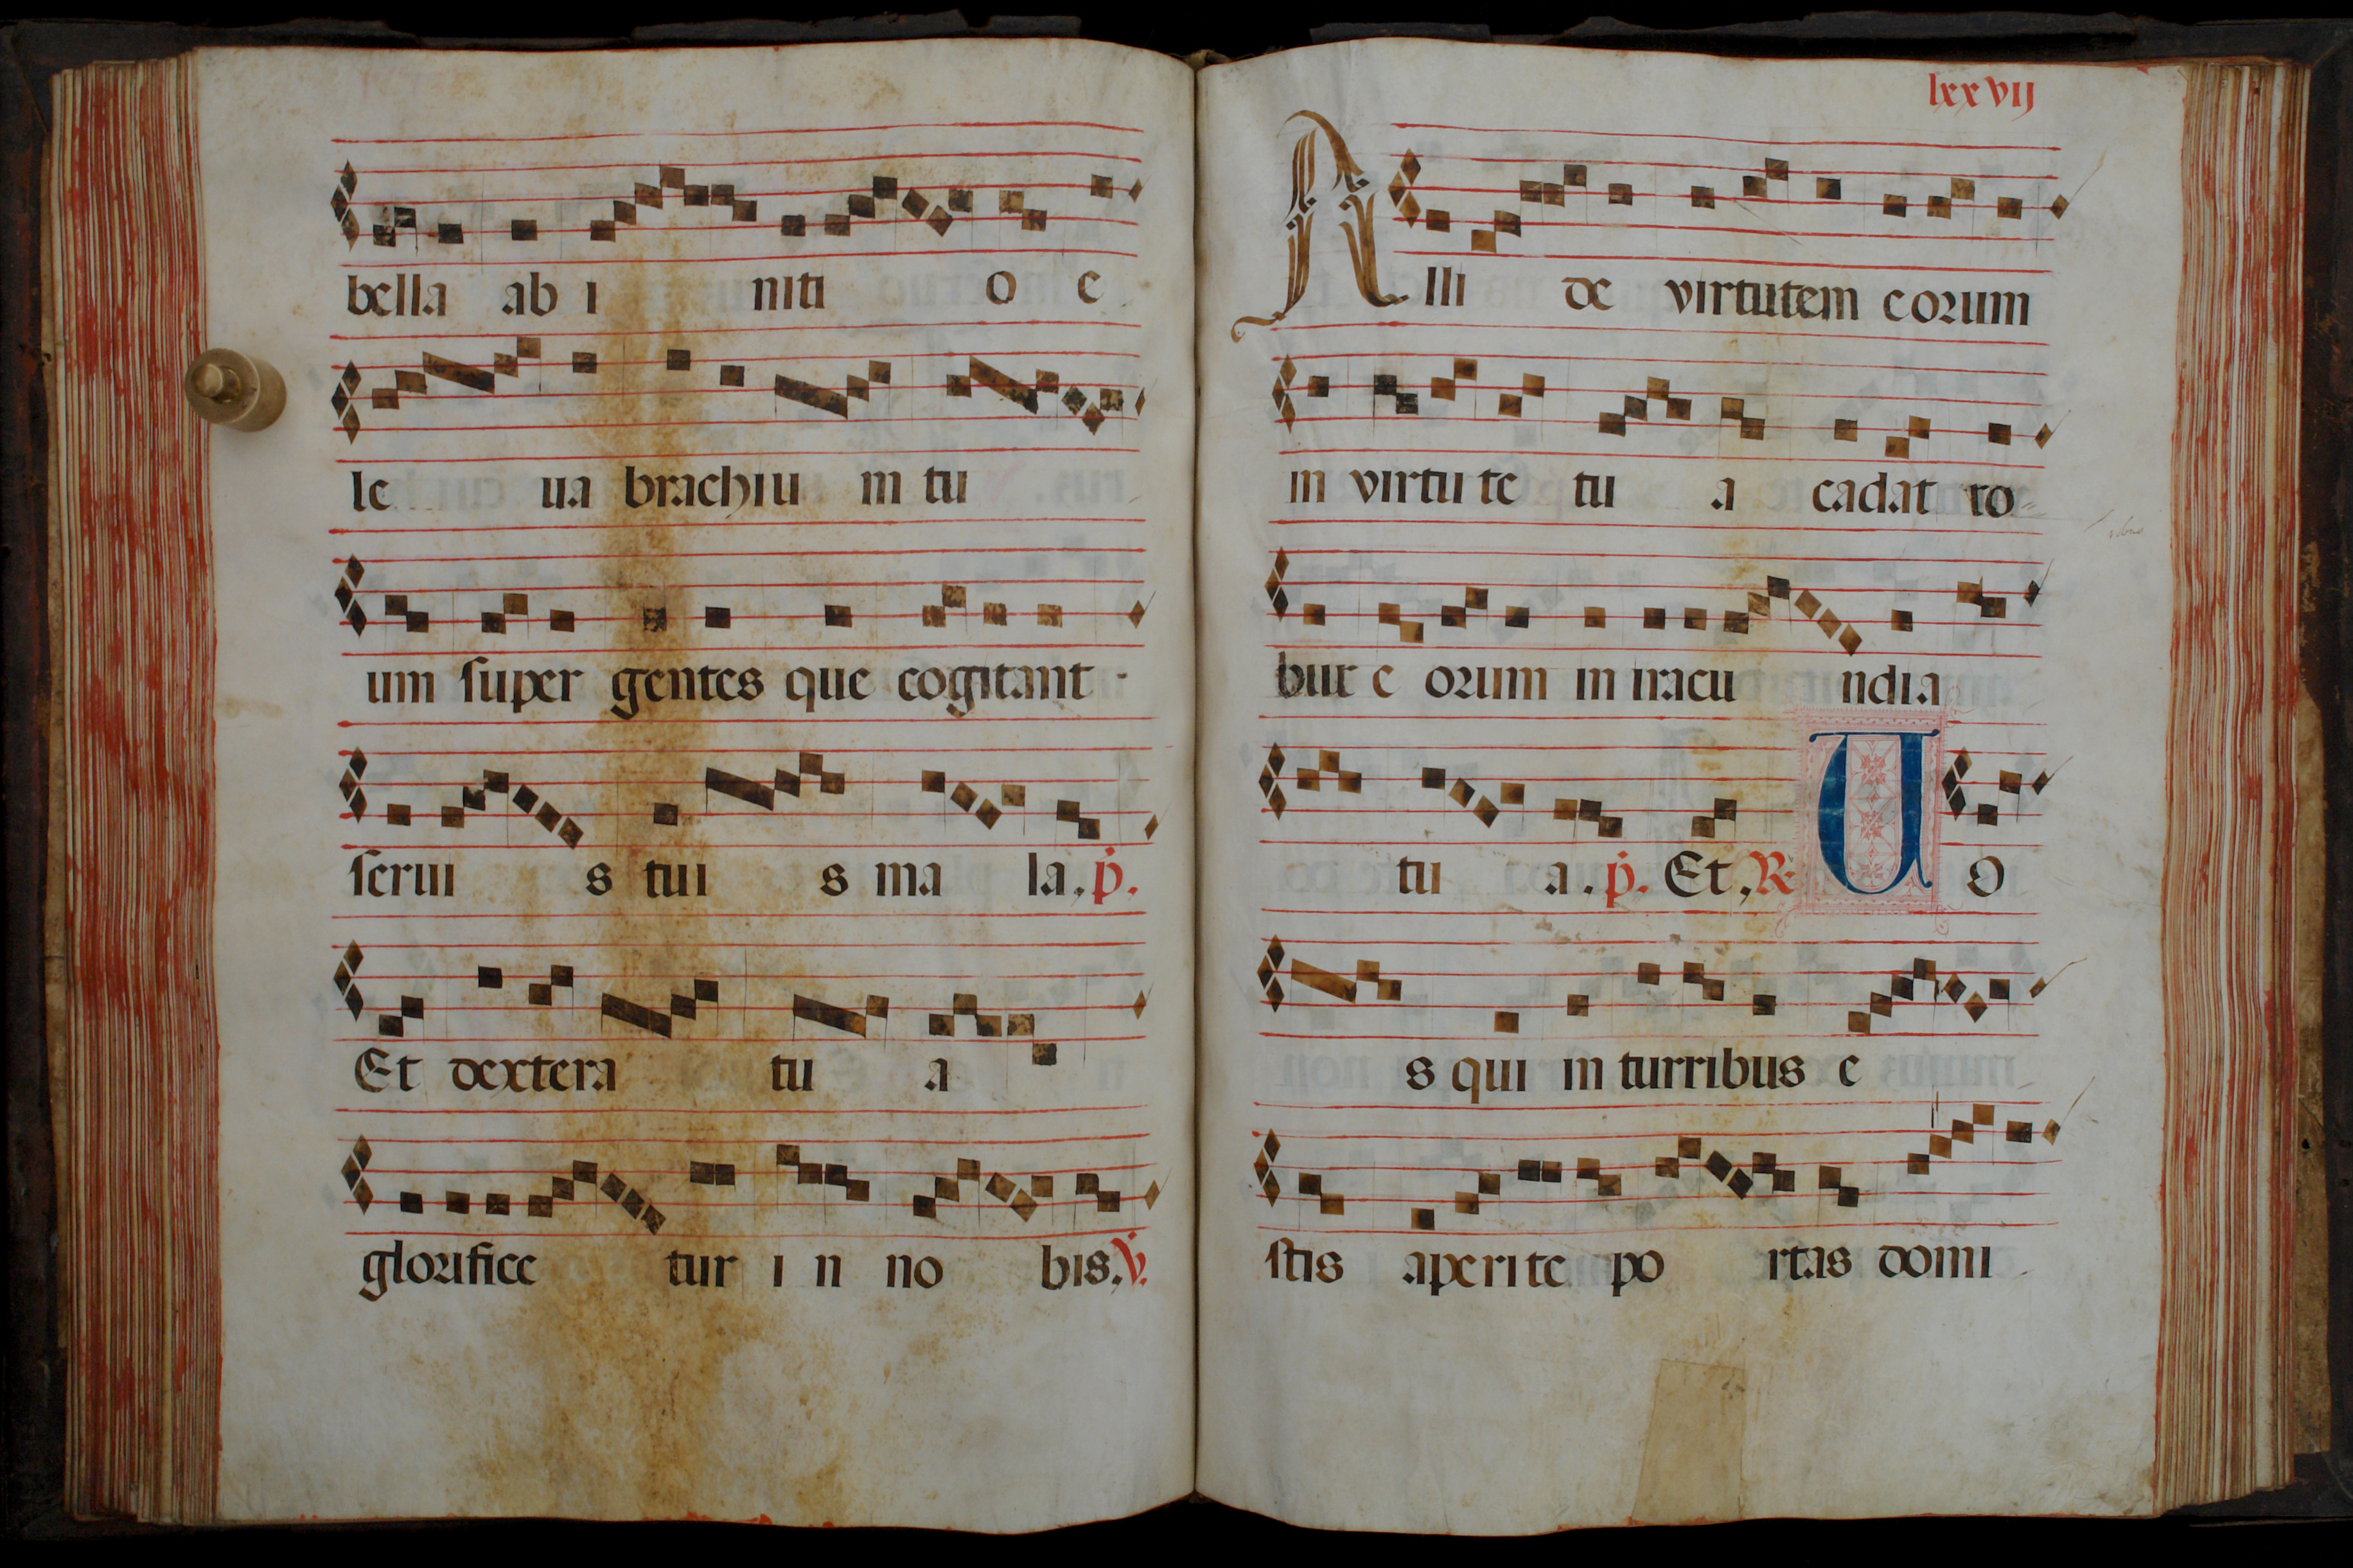 bella ab i niti o e
le ua brachiu in tu
um super gentes que cogitant
serui s tui s ma la, p.
Et dextera tu a
glorifice tur i n no bis, V.
lxxvij
Alli de virtutem eorum
in virtu te tu a cadat ro-
bur e orum in iracu ndia
tu a. p. Et, R. U O
s qui in turribus e
stis aperi te po rtas domi